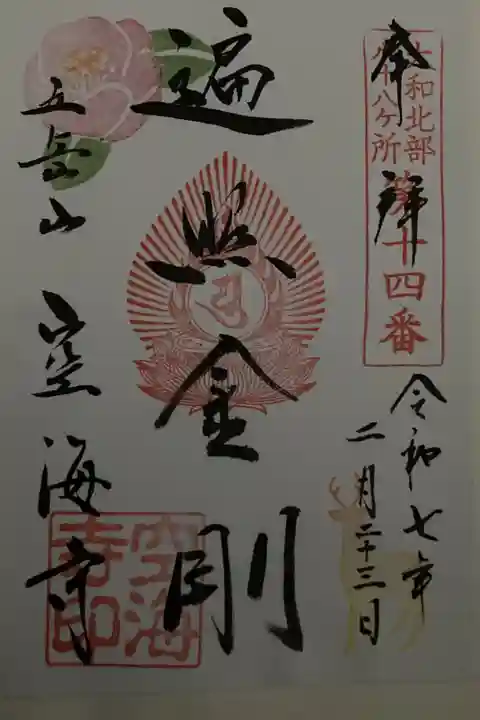 奉拝
大和北部
八十八ヶ所
第十四番
令和七年
二月二十三日
遍照金剛
五岳山 空海寺
空海
寺印